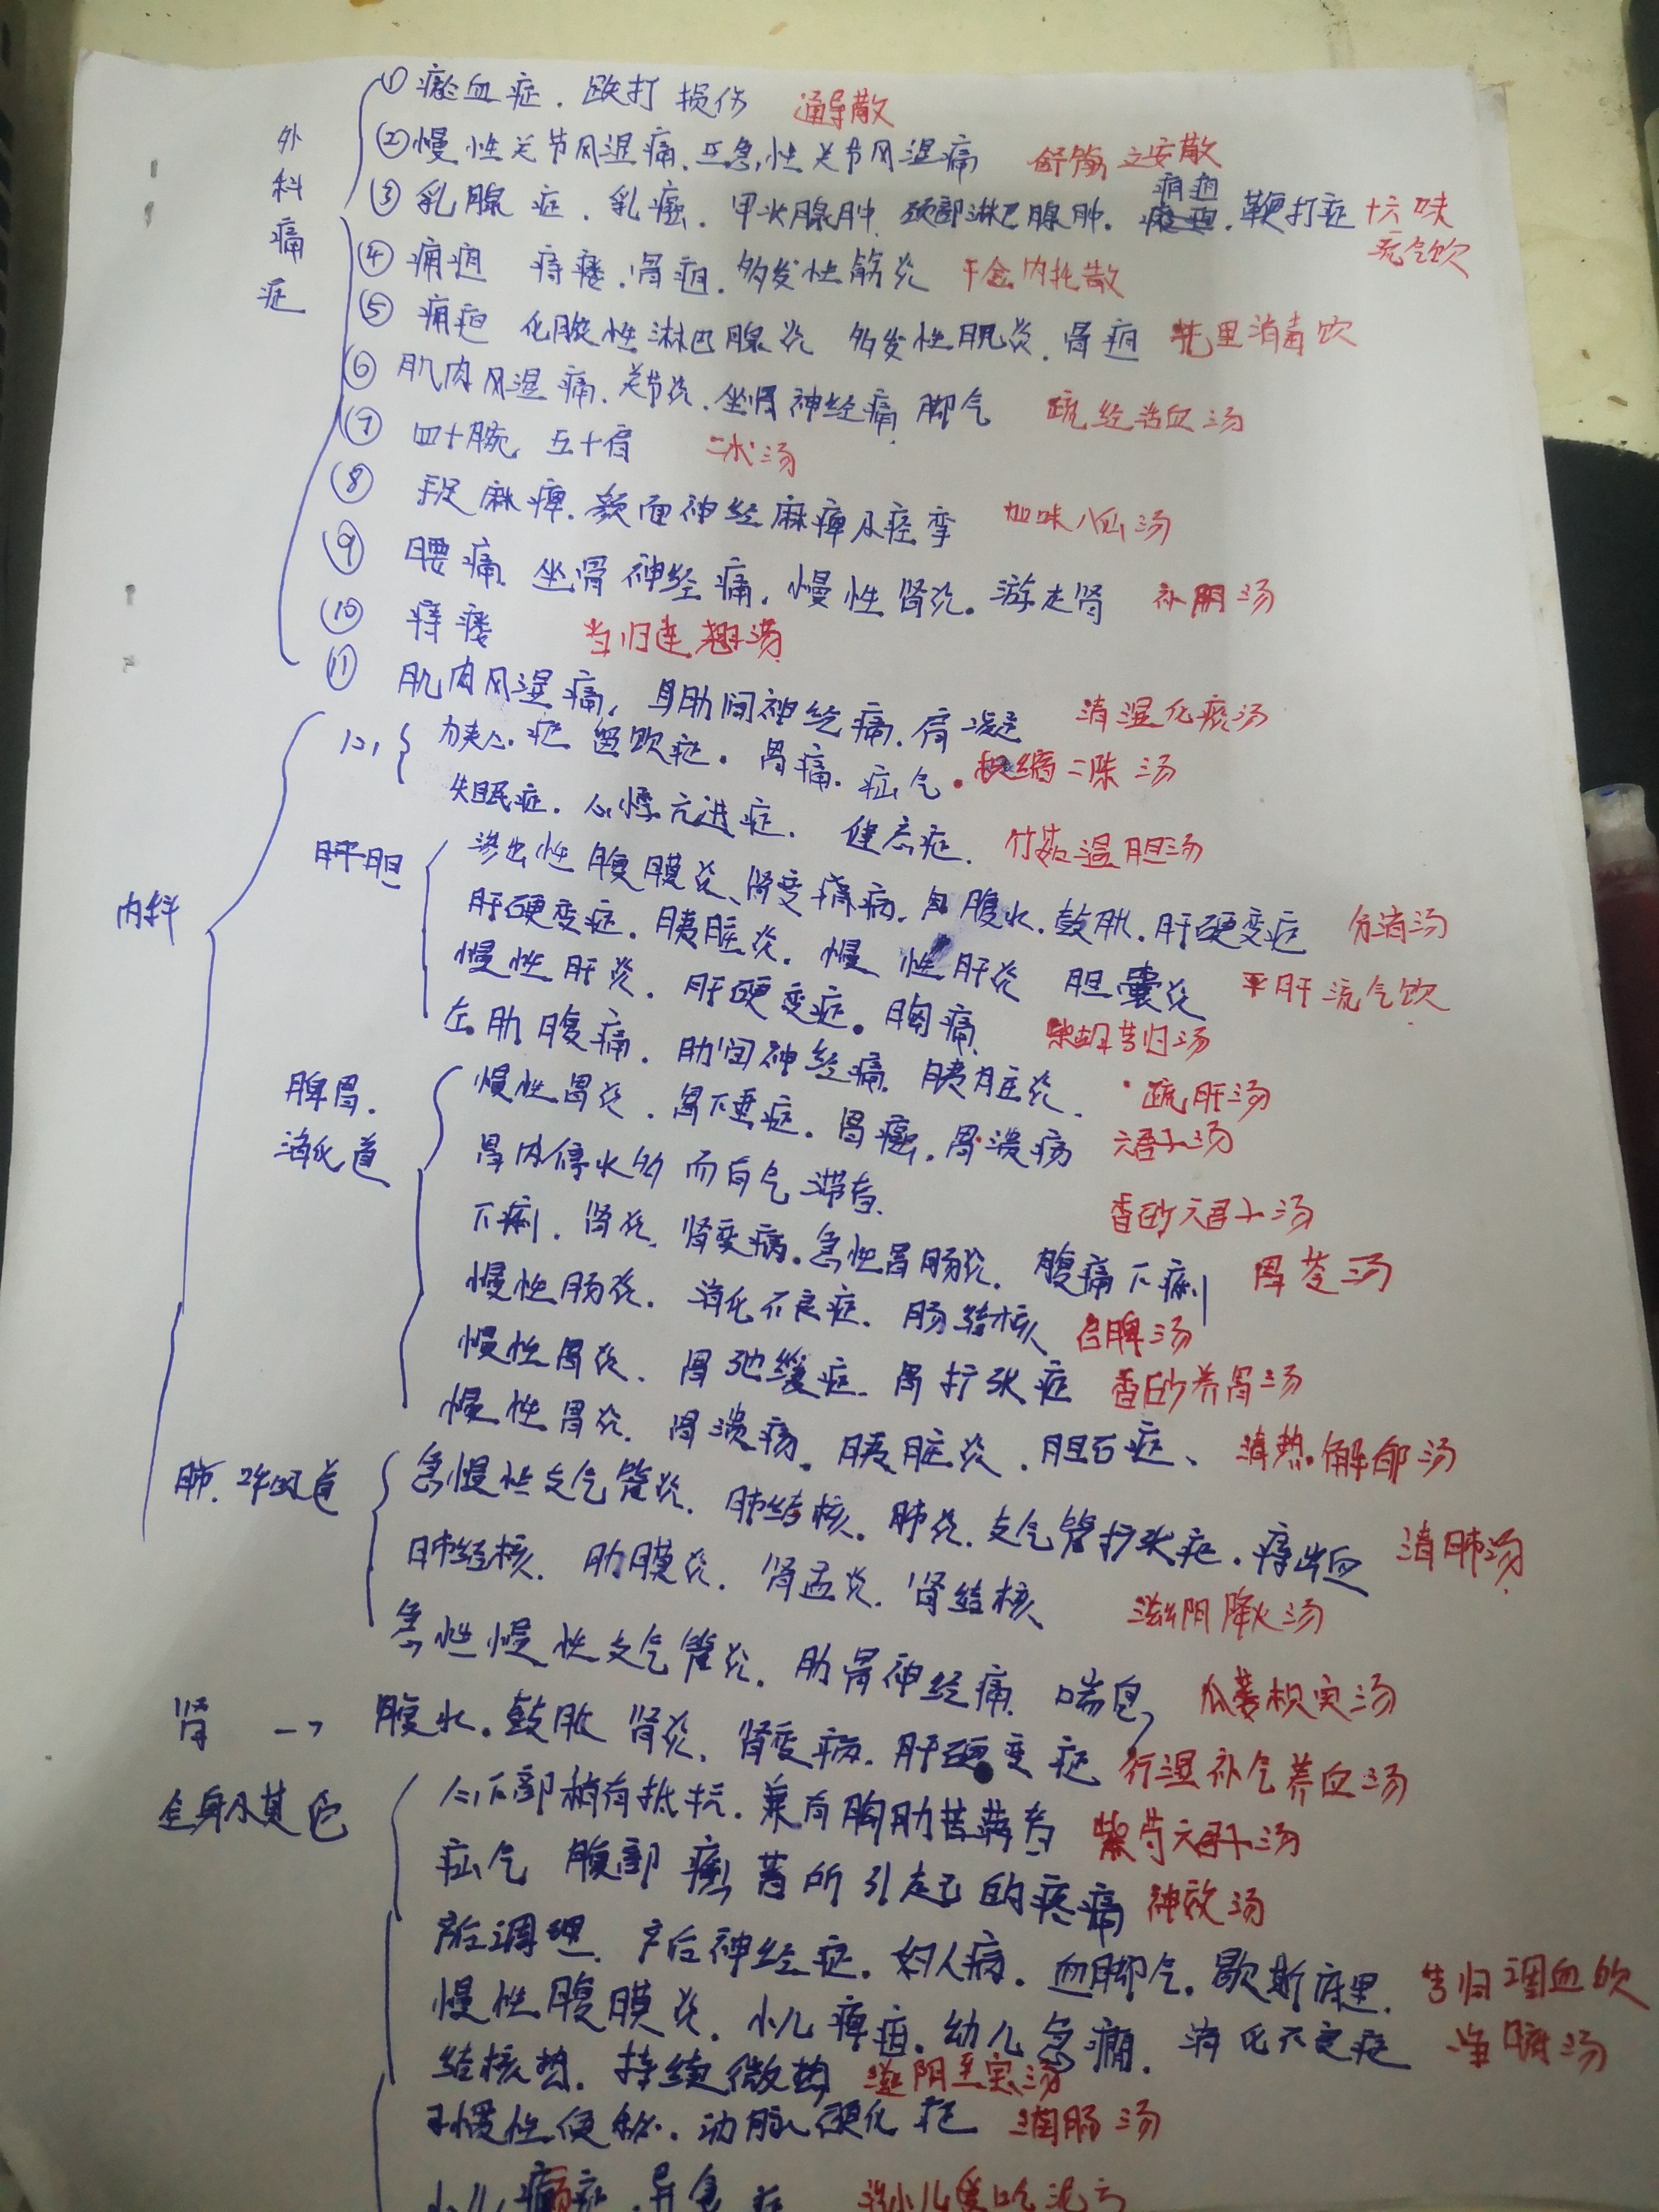 外科痛症
① 瘀血症. 跌打 损伤 通导散
② 慢性关节风湿痛. 亚急性关节风湿痛 舒筋立安散
③ 乳腺症. 乳癌. 甲状腺肿. 颈部淋巴腺肿. 痈疽. 鞭打症 十六味流气饮
④ 痈疽 痔瘘. 骨疽. 多发性筋炎 千金内托散
⑤ 痈疽 化脓性淋巴腺炎 多发性肌炎. 骨疽 托里消毒饮
⑥ 肌肉风湿痛. 关节炎. 坐骨神经痛 脚气 疏经活血汤
⑦ 四十腕 五十肩 二术汤
⑧ 手足麻痹. 颜面神经麻痹及痉挛 加味八仙汤
⑨ 腰痛. 坐骨神经痛. 慢性肾炎. 游走肾 补阴汤
⑩ 痔瘘 当归连翘汤
⑪ 肌肉风湿痛, 肋间神经痛. 肩凝 清湿化痰汤
内科
心
症 留饮症. 胃痛. 疝气. 枳缩二陈汤
失眠症. 心悸亢进症. 健忘症. 竹茹温胆汤
肝胆
渗出性腹膜炎、肾变病. 腹水. 鼓胀. 肝硬变症 分消汤
肝硬变症. 胰脏炎. 慢性肝炎 胆囊炎 平肝流气饮
慢性肝炎. 肝硬变症. 胸痛 柴胡当归汤
左肋腹痛. 肋间神经痛. 胰脏炎. 疏肝汤
脾胃. 消化道
慢性胃炎. 胃下垂症. 胃癌. 胃溃疡 六君子汤
胃内停水多而有气滞者. 香砂六君子汤
下痢. 肾炎. 肾变病. 急性胃肠炎. 腹痛下痢 胃苓汤
慢性肠炎. 消化不良症. 肠结核 启脾汤
慢性胃炎. 胃弛缓症. 胃扩张症 香砂养胃汤
慢性胃炎. 胃溃疡. 胰脏炎. 胆石症、 清热解郁汤
肺. 呼吸道
急慢性支气管炎. 肺结核. 肺炎. 支气管扩张症. 痔出血 清肺汤
肺结核. 肋膜炎. 肾盂炎. 肾结核 滋阴降火汤
急性慢性支气管炎. 肋骨神经痛. 喘息, 瓜蒌枳实汤
肾 → 腹水. 鼓胀 肾炎. 肾变病. 肝硬变症 行湿补气养血汤
全身及其它
心下部稍有抵抗. 兼有胸肋苦满者 柴芍六君子汤
疝气 腹部 所引起的疼痛 神效汤
产后调理. 产后神经症. 妇人病. 血脚气. 歇斯底里. 当归调血饮
慢性腹膜炎. 小儿痹疽. 幼儿急痫. 消化不良症 净腑汤
结核热. 持续微热 滋阴至宝汤
慢性便秘. 动脉硬化症 润肠汤
小儿 症. 异食症 治小儿爱吃泥方